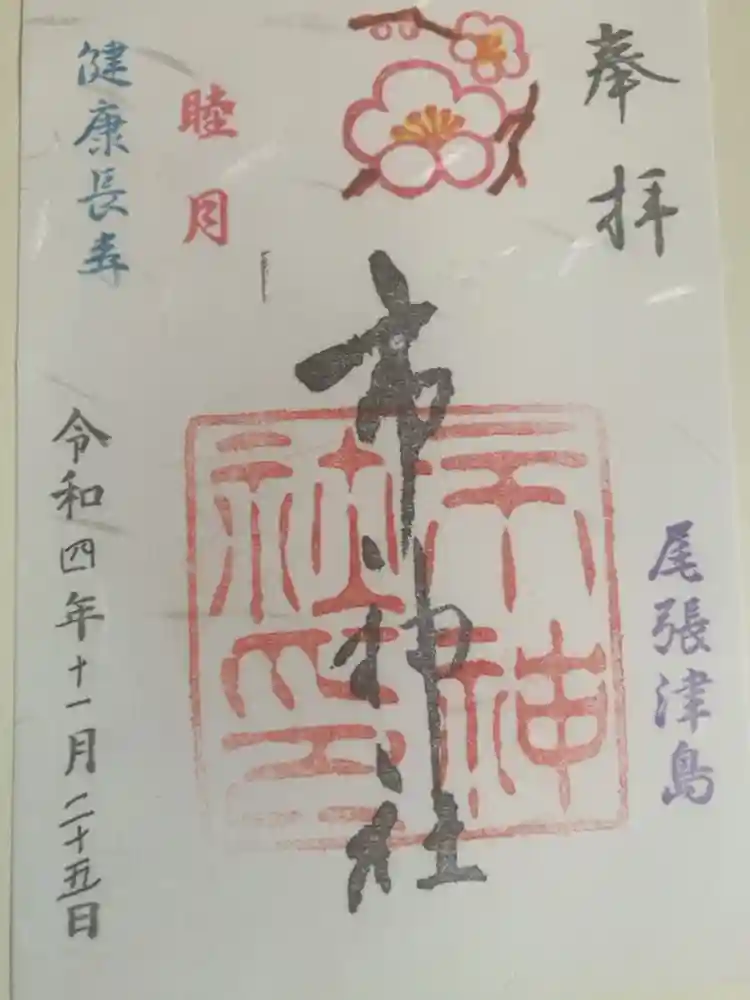 奉拝
尾張津島
市神社
市神社印
睦月
健康長寿
令和四年十一月二十五日